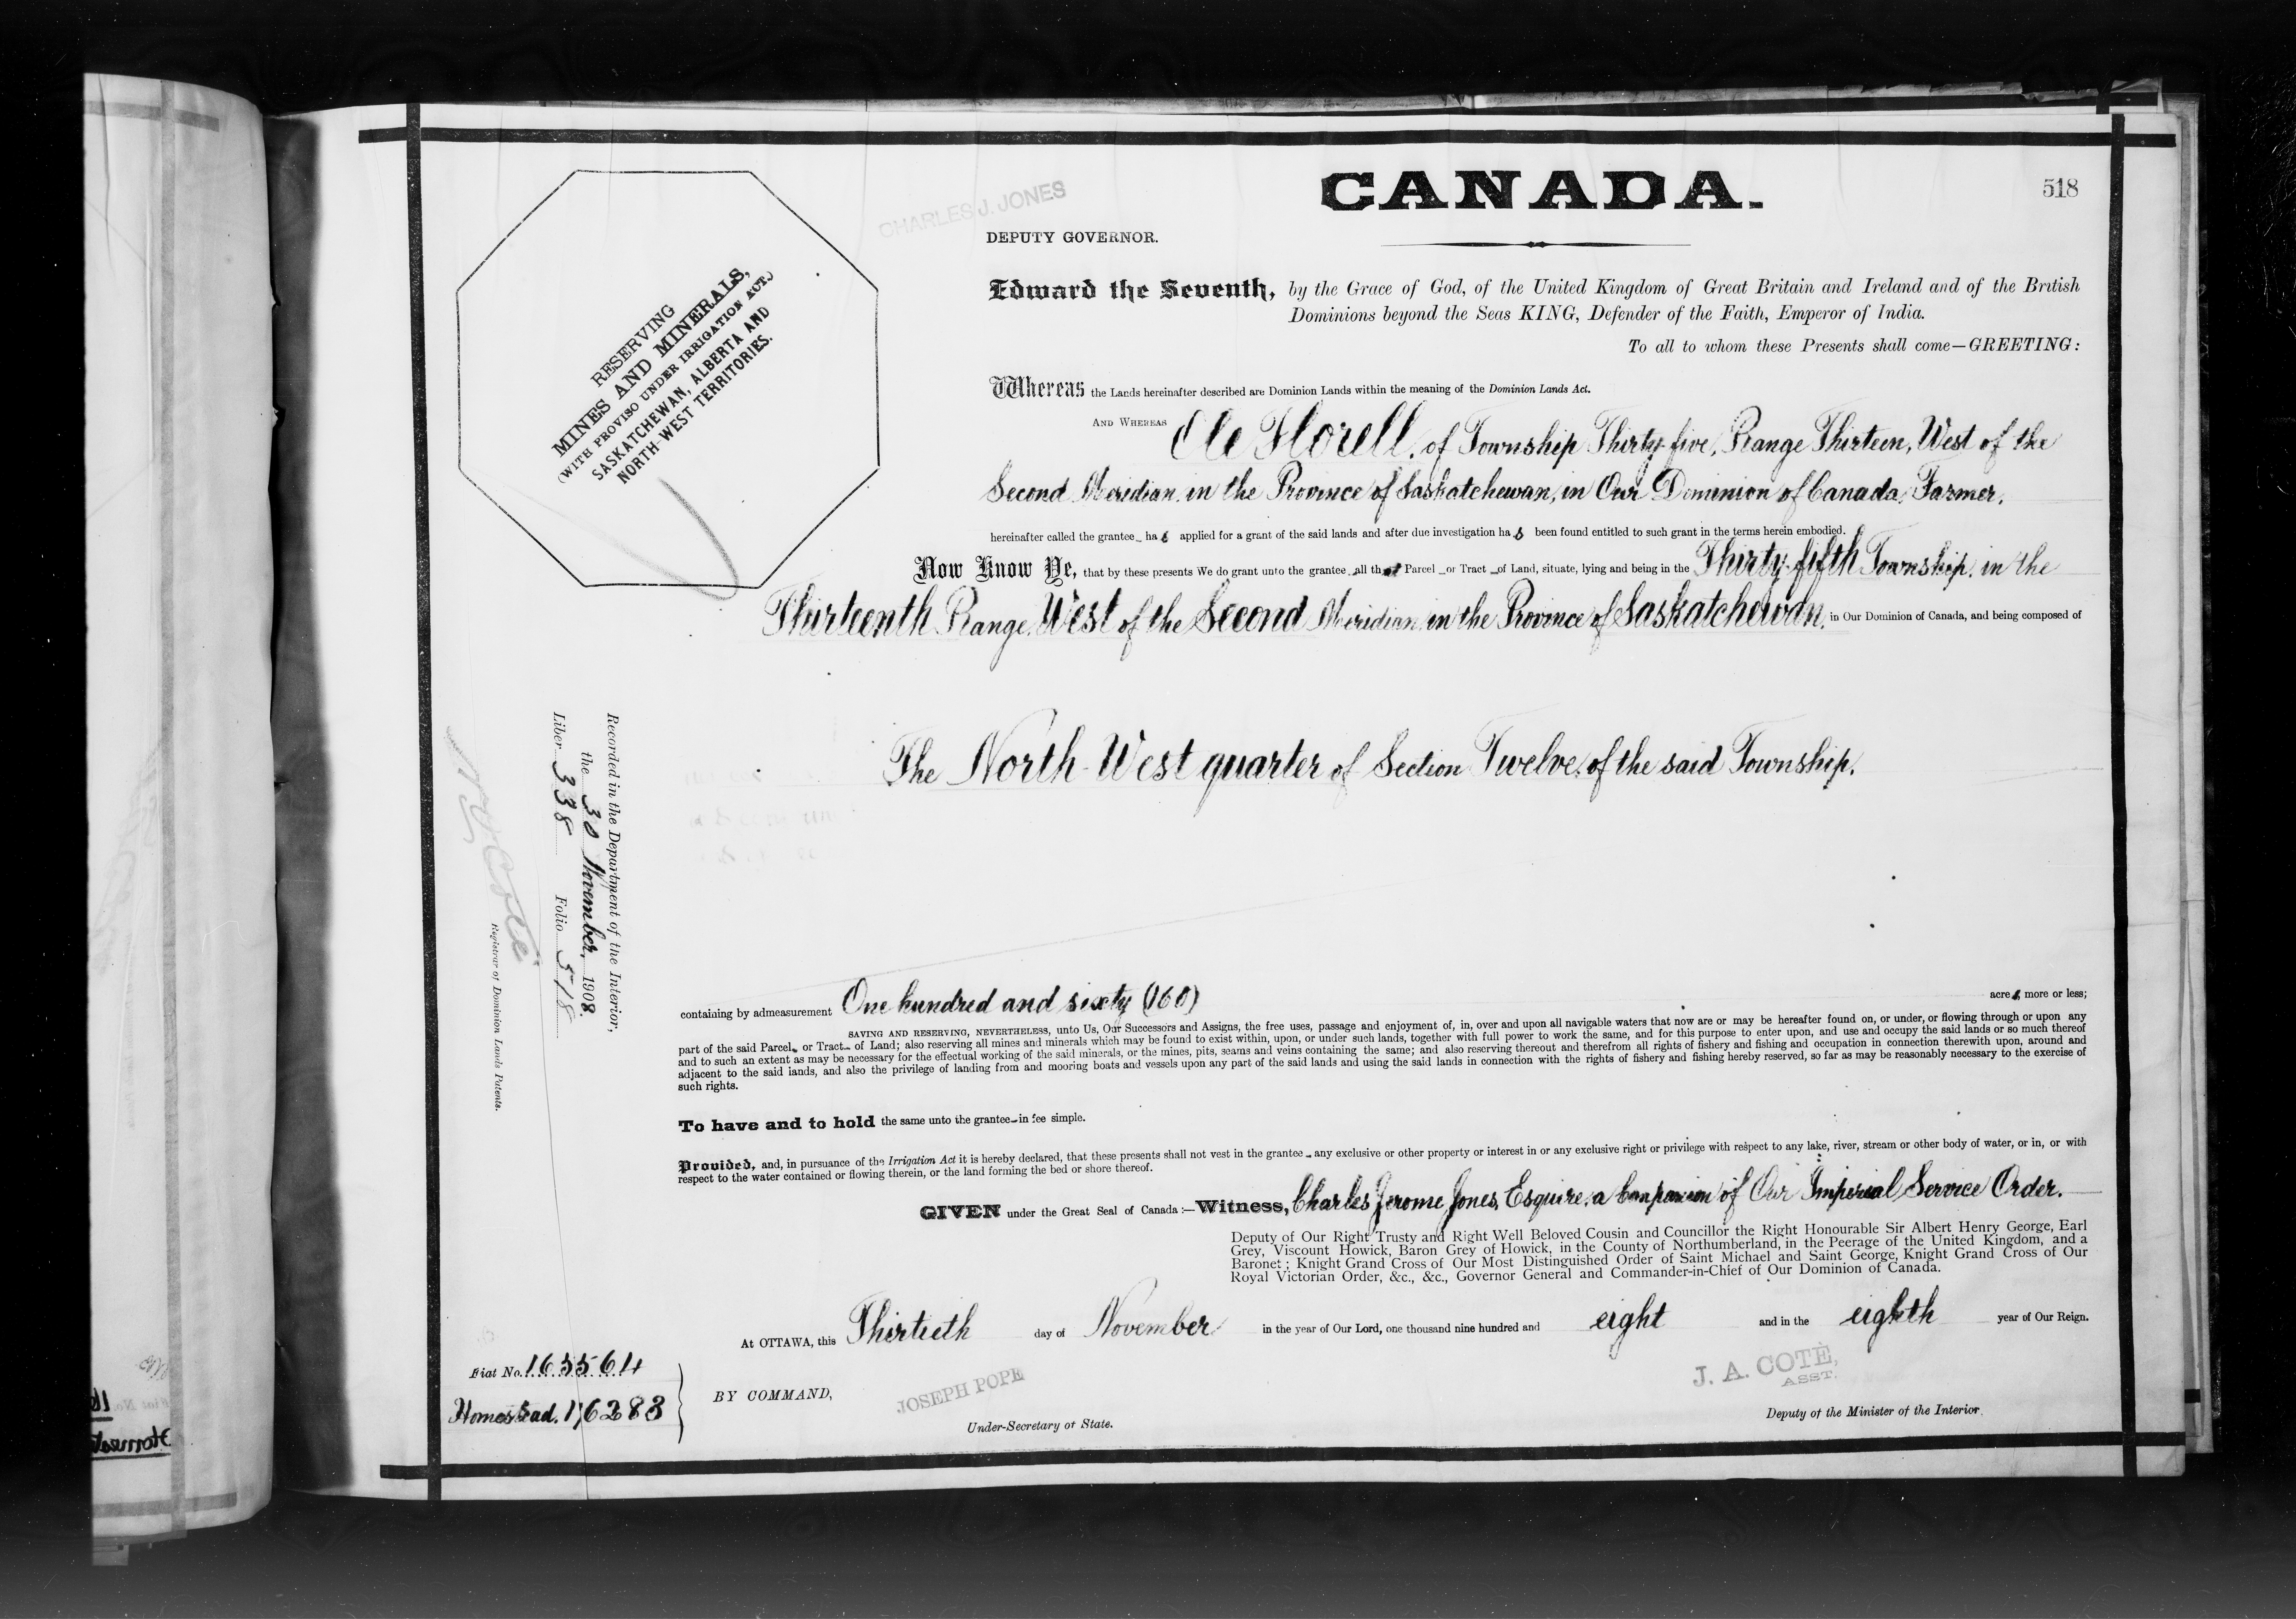 CANADA.
518
CHARLES J. JONES
DEPUTY GOVERNOR.
RESERVING
MINES AND MINERALS,
(WITH PROVISO UNDER IRRIGATION ACT.)
SASKATCHEWAN, ALBERTA AND
NORTH-WEST TERRITORIES.
Edward the Seventh, by the Grace of God, of the United Kingdom of Great Britain and Ireland and of the British
Dominions beyond the Seas KING, Defender of the Faith, Emperor of India.
To all to whom these Presents shall come—GREETING:
Whereas the Lands hereinafter described are Dominion Lands within the meaning of the Dominion Lands Act.
AND WHEREAS Ole Florell, of Township Thirty-five, Range Thirteen, West of the
Second Meridian, in the Province of Saskatchewan, in Our Dominion of Canada, Farmer,
hereinafter called the grantee has applied for a grant of the said lands and after due investigation has been found entitled to such grant in the terms herein embodied.
Now Know Ye, that by these presents We do grant unto the grantee all that Parcel or Tract of Land, situate, lying and being in the Thirty-fifth Township, in the
Thirteenth Range, West of the Second Meridian, in the Province of Saskatchewan, in Our Dominion of Canada, and being composed of
The North-West quarter of Section Twelve, of the said Township.
Recorded in the Department of the Interior,
the 30 November, 1908.
Liber 338 Folio 518
Registrar of Dominion Lands Patents.
containing by admeasurement One hundred and sixty (160) acres, more or less;
SAVING AND RESERVING, NEVERTHELESS, unto Us, Our Successors and Assigns, the free uses, passage and enjoyment of, in, over and upon all navigable waters that now are or may be hereafter found on, or under, or flowing through or upon any
part of the said Parcel or Tract of Land; also reserving all mines and minerals which may be found to exist within, upon, or under such lands, together with full power to work the same, and for this purpose to enter upon, and use and occupy the said lands or so much thereof
and to such an extent as may be necessary for the effectual working of the said minerals, or the mines, pits, seams and veins containing the same; and also reserving thereout and therefrom all rights of fishery and fishing and occupation in connection therewith upon, around and
adjacent to the said lands, and also the privilege of landing from and mooring boats and vessels upon any part of the said lands and using the said lands in connection with the rights of fishery and fishing hereby reserved, so far as may be reasonably necessary to the exercise of
such rights.
To have and to hold the same unto the grantee in fee simple.
Provided, and, in pursuance of the Irrigation Act it is hereby declared, that these presents shall not vest in the grantee any exclusive or other property or interest in or any exclusive right or privilege with respect to any lake, river, stream or other body of water, or in, or with
respect to the water contained or flowing therein, or the land forming the bed or shore thereof.
GIVEN under the Great Seal of Canada:—Witness, Charles Jerome Jones, Esquire, a Companion of Our Imperial Service Order.
Deputy of Our Right Trusty and Right Well Beloved Cousin and Councillor the Right Honourable Sir Albert Henry George, Earl
Grey, Viscount Howick, Baron Grey of Howick, in the County of Northumberland, in the Peerage of the United Kingdom, and a
Baronet; Knight Grand Cross of Our Most Distinguished Order of Saint Michael and Saint George, Knight Grand Cross of Our
Royal Victorian Order, &c., &c., Governor General and Commander-in-Chief of Our Dominion of Canada.
At OTTAWA, this Thirtieth day of November in the year of Our Lord, one thousand nine hundred and eight and in the eighth year of Our Reign.
Fiat No. 163564
Homestead. 16283
BY COMMAND,
JOSEPH POPE
Under-Secretary of State.
J. A. COTÉ,
ASST.
Deputy of the Minister of the Interior.